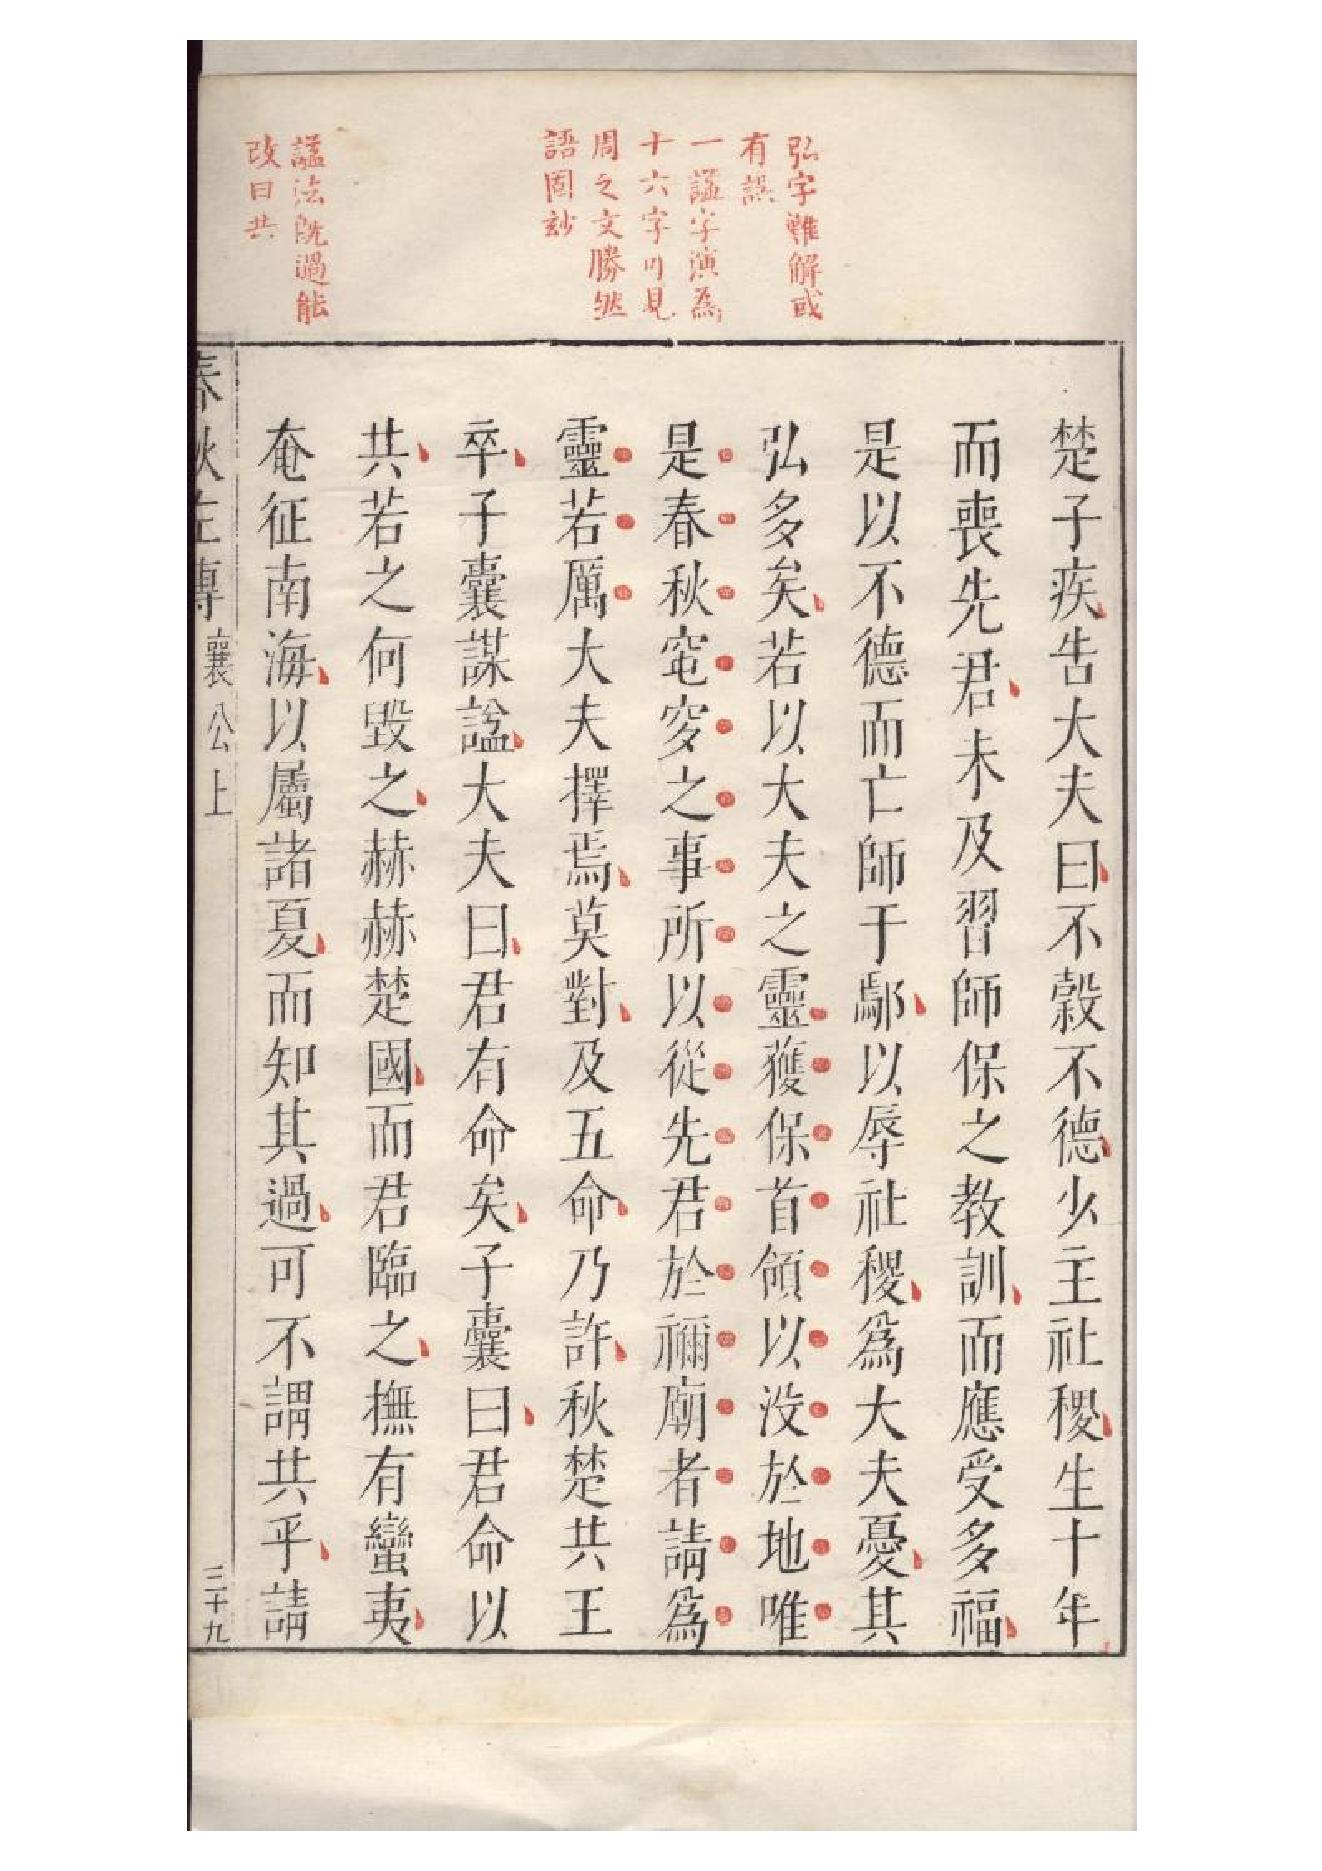 弘字難解或
有誤
一謚字演為
十六字可見
周之文勝然
語固玅
謚法旣過能
改曰共
楚子疾告大夫曰不穀不德少主社稷生十年
而喪先君未及習師保之教訓而應受多福
是以不德而亡師于鄢以辱社稷爲大夫憂其
弘多矣若以大夫之靈獲保首領以沒於地唯
是春秋窀穸之事所以從先君於禰廟者請爲
靈若厲大夫擇焉莫對及五命乃許秋楚共王
卒子囊謀諡大夫曰君有命矣子囊曰君命以
共若之何毀之赫赫楚國而君臨之撫有蠻夷
奄征南海以屬諸夏而知其過可不謂共乎請
春秋左傳 襄公上 三十九